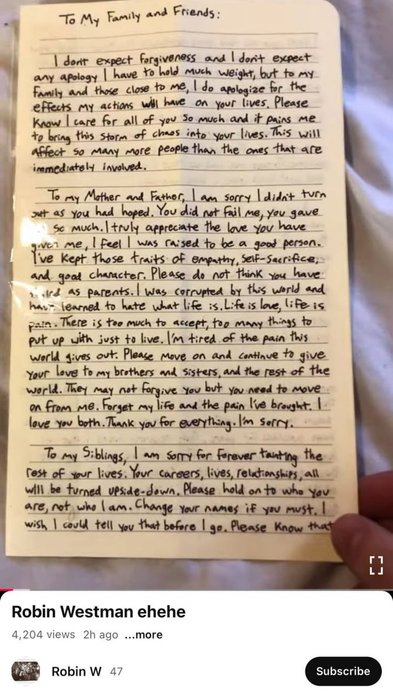 To My Family and Friends:
I don't expect forgiveness and I don't expect
any apology I have to hold much weight, but to my
family and those close to me, I do apologize for the
effects my actions will have on your lives. Please
Know I care for all of you so much and it pains me
to bring this storm of chaos into your lives. This will
affect so many more people than the ones that are
immediately involved.
To my Mother and Father, I am sorry I didn't turn
out as you had hoped. You did not fail me, you gave
so much. I truly appreciate the love you have
given me, I feel I was raised to be a good person.
I've kept those traits of empathy, self-sacrifice,
and good character. Please do not think you have
as parents. I was corrupted by this world and
have learned to hate what life is. Life is love, life is
pain. There is too much to accept, too many things to
put up with just to live. I'm tired of the pain this
world gives out. Please move on and continue to give
your love to my brothers and sisters, and the rest of the
world. They may not forgive you but you need to move
on from me. Forget my life and the pain I've brought. I
love you both. Thank you for everything. I'm sorry.
To my Siblings, I am sorry for forever tainting the
rest of your lives. Your careers, lives, relationships, all
will be turned upside-down. Please hold on to who you
are, not who I am. Change your names if you must. I
wish I could tell you that before I go. Please know that
Robin Westman ehehe
4,204 views 2h ago ...more
Robin W 47
Subscribe